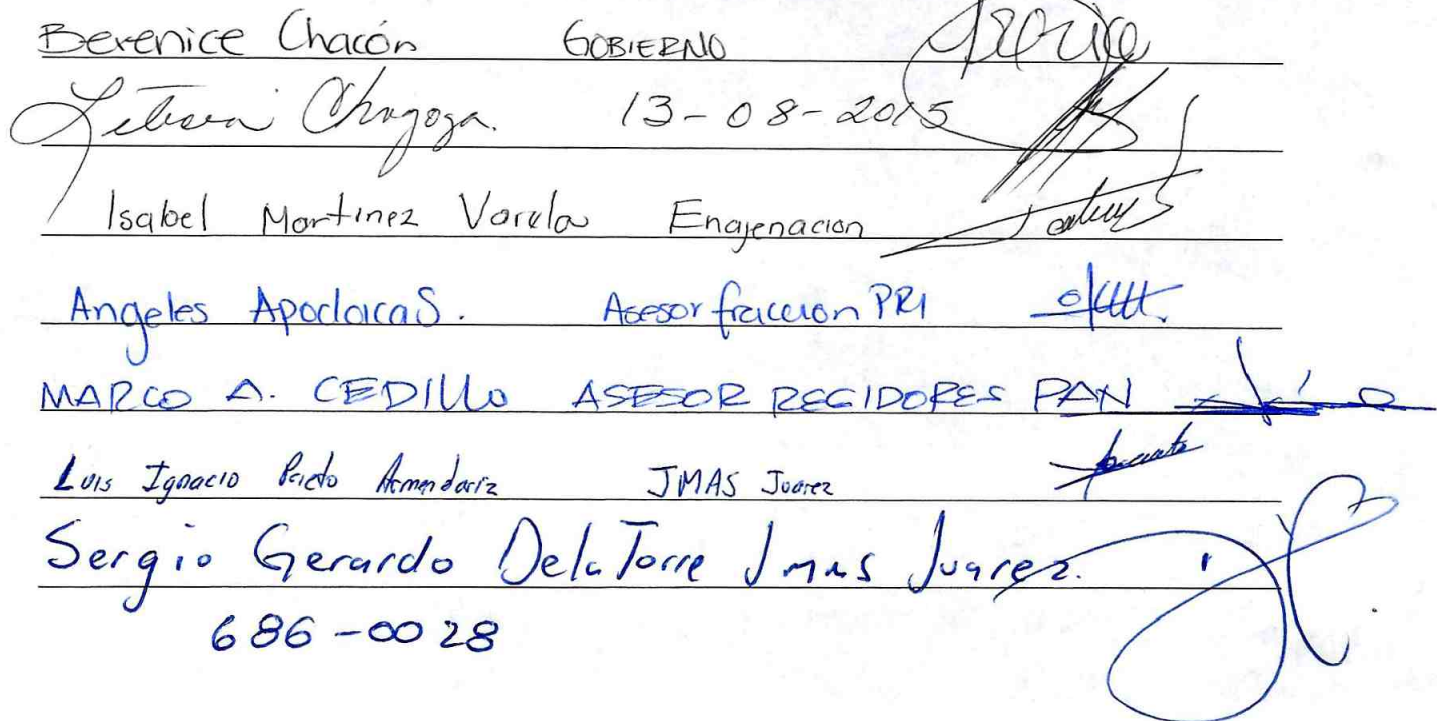 Berenice Chacón GOBIERNO
Leticia Chagoya. 13-08-2015
Isabel Martinez Varela Enajenacion
Angeles Apodaca S. Asesor fraccion PRI
MARCO A. CEDILLO ASESOR REGIDORES PAN
Luis Ignacio Prieto Armendariz JMAS Juarez
Sergio Gerardo De la Torre Jmas Juarez.
686-0028